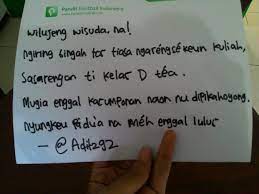 Wilujeng wisuda, na!
Ngiring bingah tor tiasa ngarengsekeun kuliah,
Sasarengan ti kelas D téa.
Mugia enggal kacumponan naon nu dipikahoyong.
Nyungkeun na méh enggal lulus
— @Aditz92